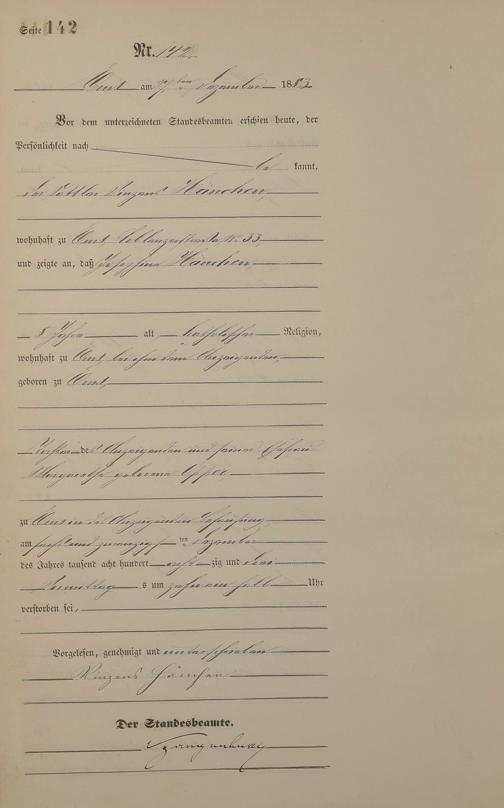 Seite 142
Nr. 142.
Ems am ten Dezember 1883
Vor dem unterzeichneten Standesbeamten erschien heute, der
Persönlichkeit nach
be kannt,
der Sattler Vinzens Hänchen,
wohnhaft zu Ems, Coblenzerstraße № 33,
und zeigte an, daß Josephina Hänchen,
8 Jahre alt, katholischer Religion,
wohnhaft zu Ems bei ihm dem Anzeigenden,
geboren zu Ems,
Tochter des Anzeigenden und seiner Ehefrau
Margarethe geborene
zu Ems in des Anzeigenden Behausung,
am sechsundzwanzigsten ten Dezember
des Jahres tausend acht hundert achtzig und drei
Vormittags um zehn ein halb Uhr
verstorben sei,
Vorgelesen, genehmigt und unterschrieben
Vinzens Hänchen
Der Standesbeamte.